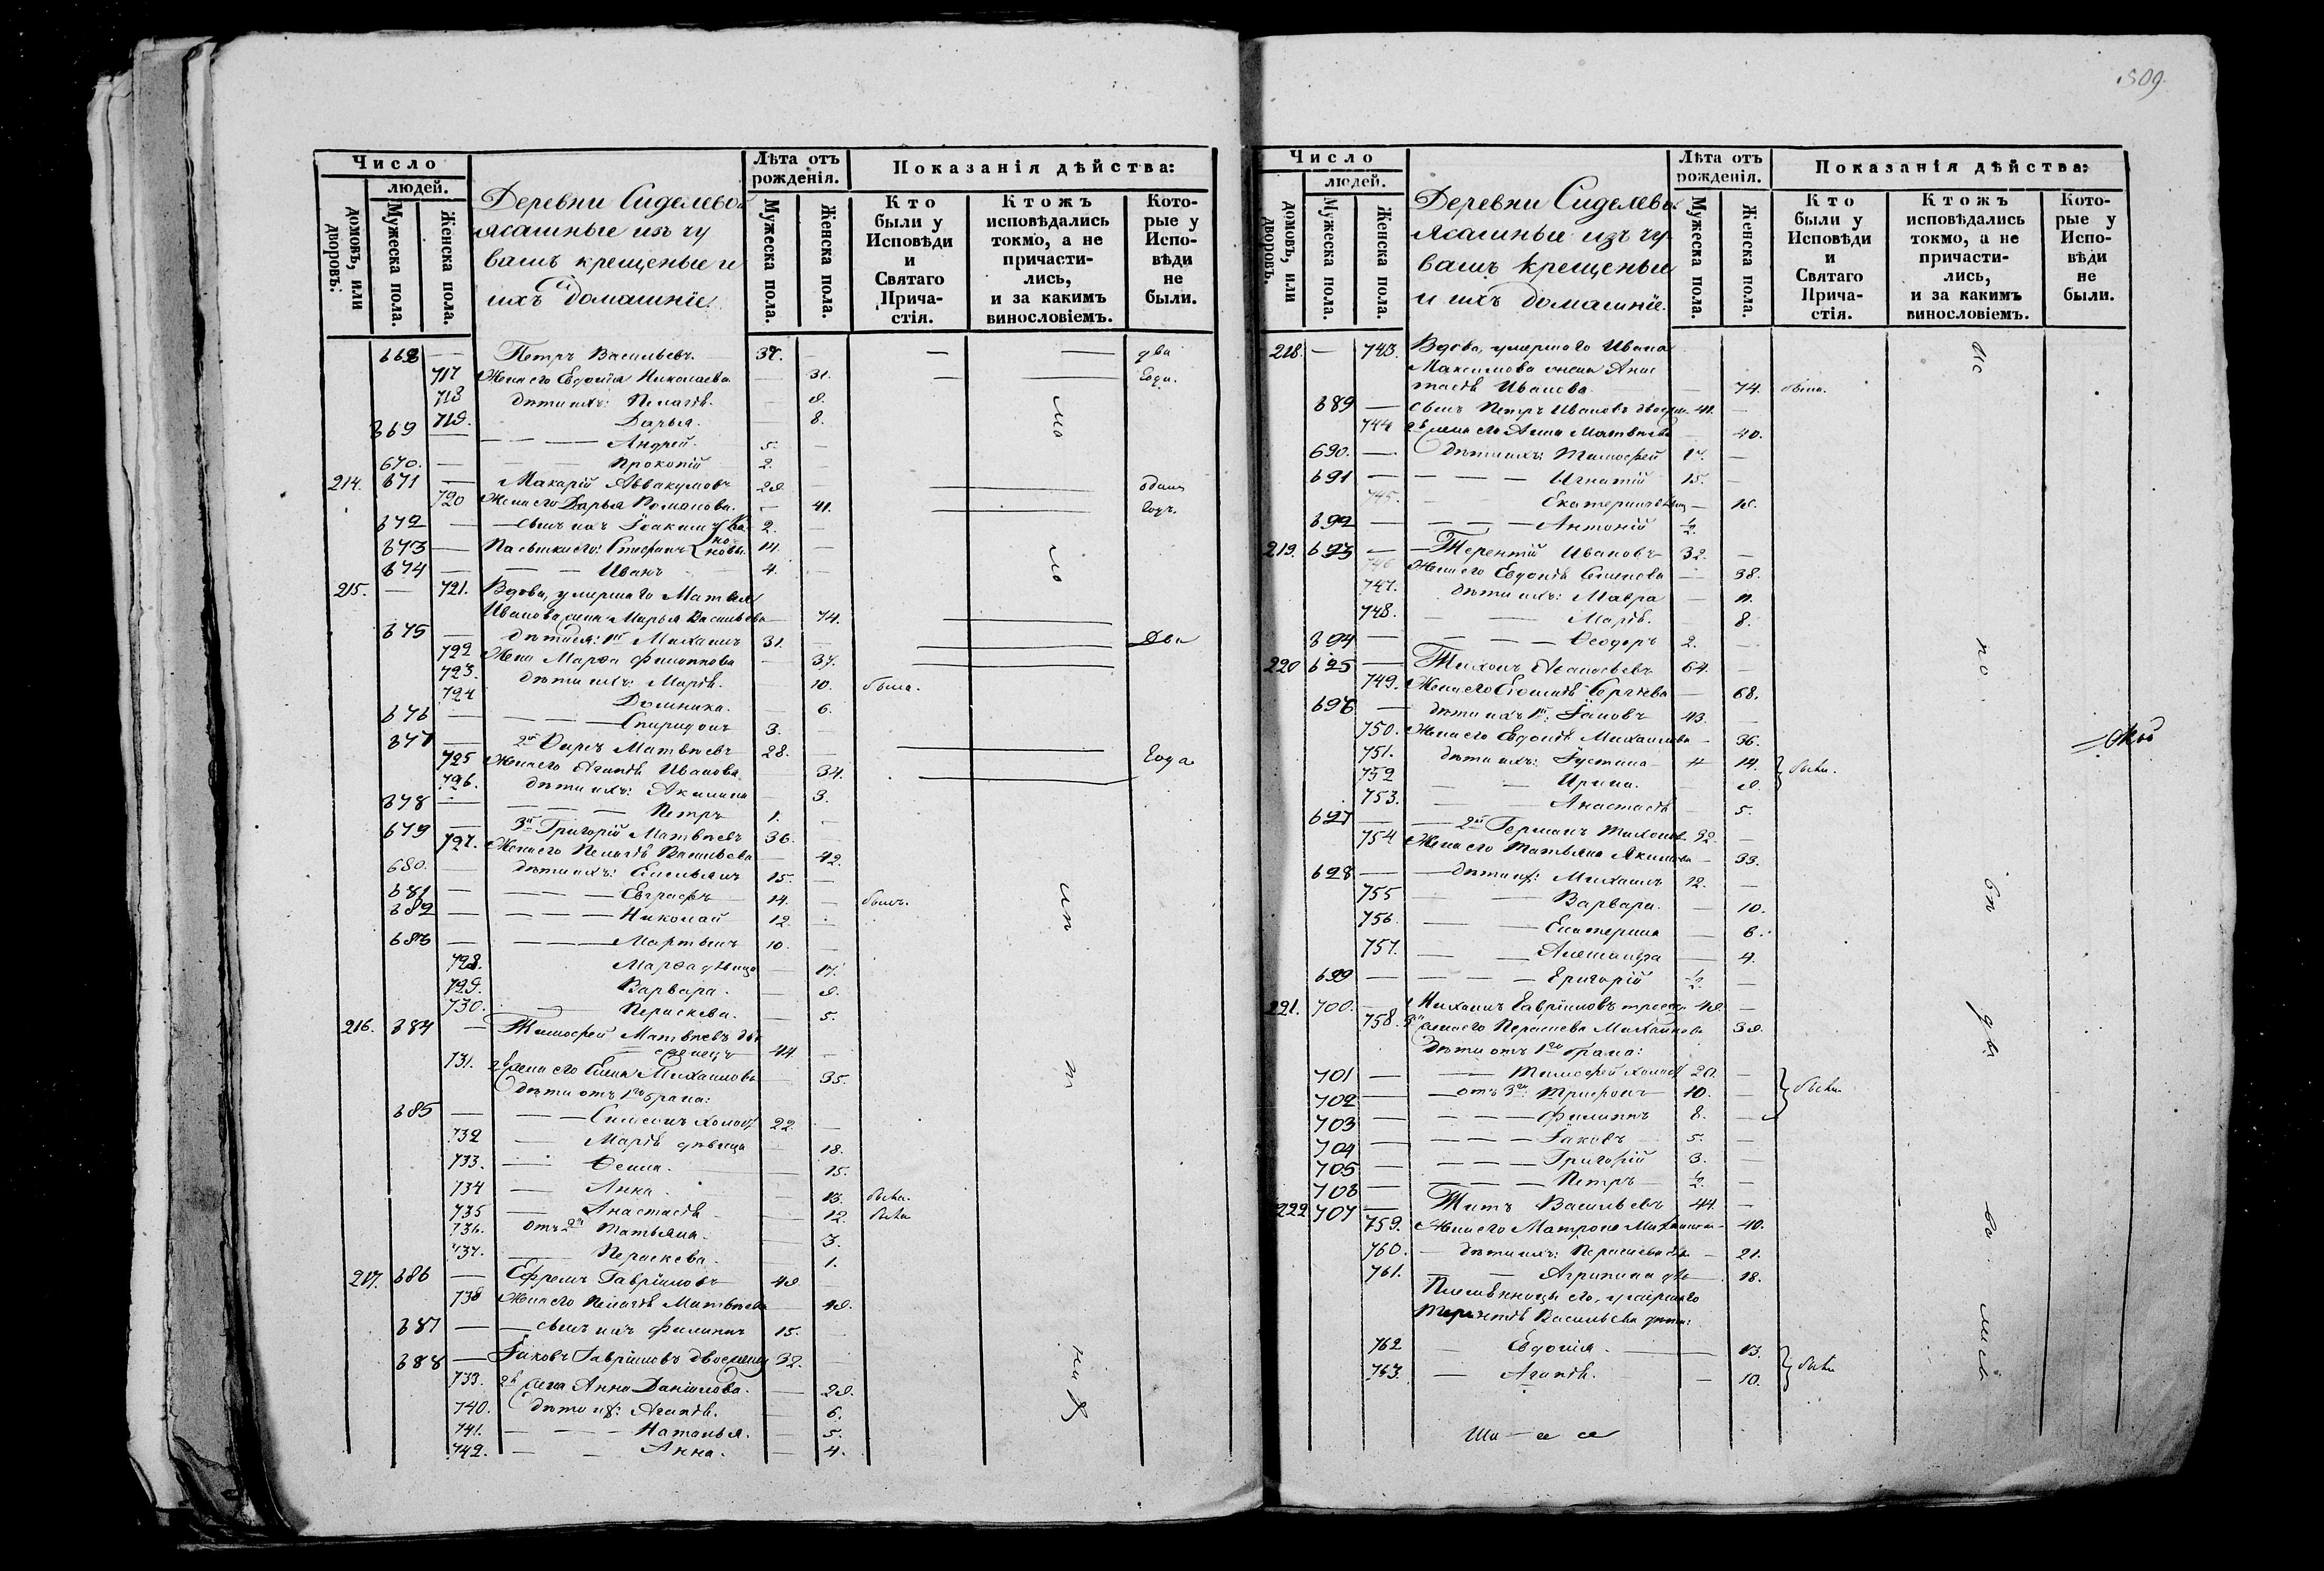 Число
людей.
домовъ, или дворовъ:
Мужеска пола.
Женска пола.
Деревни Сиделевой
ясашные изъ чу
вашъ крещеные и
ихъ домашніе.
Лѣта отъ рожденія.
Мужеска пола.
Женска пола.
Показанія дѣйства:
Кто были у Исповѣди и Святаго Прича- стія.
Ктожъ исповѣдались токмо, а не причасти- лись, и за какимъ винословіемъ.
Кото- рые у Испо- вѣди не были.
668 — Петръ Васильевъ. 37. — — — два
717 Жена его Евдокія Николаева — 31. — — года.
718 дѣти ихъ: Пелагія. — 9.
719. Дарья. — 8.
669 — Андрей. 5. —
670. — Прокопій 2. —
214. 671 — Макарій Аввакумовъ 29. — — одинъ
720 Жена его Дарья Романова. — 41. — годъ.
672 — сынъ ихъ Іоакимъ 2. —
673 — Пасынки его: Стефанъ 11. —
674 — Иванъ 4. —
215. — 721. Вдова, умершаго Матвея
Иванова жена Марья Васильева — 74. —
675 — дѣти ея: 1й Михаилъ 31. — Два
722 Жена Марѳа Филиппова — 37. —
723. дѣти ихъ: Марія. — 10. была.
724 Домника. — 6.
676 — Спиридонъ 3.
677 — 2й Ѳирсъ Матвѣевъ 28. — Года
725 Жена его Агапія Иванова — 34. —
726. дѣти ихъ: Акилина — 3.
678 — Петръ 1. —
679 — 3й Григорій Матвѣевъ 36. —
727. Жена его Пелагія Васильева — 42.
680. — дѣти ихъ: Емельянъ 15. —
681 — Евграфъ 14. — былъ.
682 — Николай 12. —
683 — Мартынъ 10. —
728. Марѳа дѣвица — 17.
729. Варвара. — 9.
730. — Параскева. — 5.
216. 684 — Тимофей Матвѣевъ дво
еженецъ 44. —
731. 2я жена его Елена Михаилова — 35.
Дѣти отъ 1го брака:
685 — Симеонъ холост 22. —
732 — Марія дѣвица — 18.
733. — Ѳекла. — 15.
734 — Анна. — 13. были.
735 — Анастасія — 12. были
736. отъ 2й Татьяна. — 3.
737. — Параскева. — 1.
217. 686 — Ефремъ Гавриловъ 49. —
738 Жена его Пелагія Матвѣева — 49.
687 — сынъ ихъ Филиппъ 15. —
688 — Іаковъ Гавриловъ двоежен 32. —
739. 2я жена Анна Данилова. — 29.
740. Дѣти их: Агапія. — 6.
741. — Наталья. — 5.
742. — Анна. — 4.
509.
Число
людей.
домовъ, или дворовъ.
Мужеска пола.
Женска пола.
Деревни Сиделевой
Ясашные изъ чу-
вашъ крещеные
и ихъ домашніе.
Лѣта отъ рожденія.
Мужеска пола.
Женска пола.
Показанія дѣйства:
Кто были у Исповѣди и Святаго Прича- стія.
Ктожъ исповѣдались токмо, а не причасти- лись, и за какимъ винословіемъ.
Кото- рые у Испо- вѣди не были.
218. — 743. Вдова, умершаго Ивана
Максимова жена Анас
тасія Иванова — 74. была.
689 — сынъ Петръ Ивановъ двоежен. 41. —
744 2я жена его Анна Матвѣева — 40.
690. — Дѣти ихъ: Тимофей 17. —
691 — Игнатій 15. —
745. Екатерина —
692 — Антоній ½.
219. 693 — Терентій Ивановъ 32. —
746 Жена его Евдокія Семенова — 38.
747. дѣти ихъ: Мавра — 11.
748. — Марія. — 8.
694 — Ѳеодоръ 2. —
220 695 — Тихонъ Аѳанасьевъ 64. —
749. Жена его Евѳимія Сергѣева — 68.
696 — дѣти ихъ 1й: Іаковъ 43. —
750. Жена его Евдокія Михаилова — 36.
751. дѣти ихъ: Іустина — 14. были.
752 — Ирина. — 9.
753. — Анастасія — 5.
697 — 2й Германъ Тихоновъ 32. —
754 Жена его Татьяна Якимова — 33.
698 — дѣти их: Михаилъ 12. —
755 — Варвара. — 10.
756. — Екатерина — 6.
757. — Александра — 4.
699 — Григорій ½. —
221. 700. — Михаилъ Гавриловъ троеж 49. —
758. 3я жена его Параскева Михайлова 39.
Дѣти отъ 1го брака:
701 — Тимофей холост 20. —
702 — отъ 3го: Трифонъ 10. — были.
703 — Филиппъ 8. —
704 — Іаковъ 5. —
705 — Григорій 3. —
706 — Петръ ½. —
222 707 — Титъ Васильевъ 44. —
759. Жена его Матрона Михайлова — 40.
760. — дѣти ихъ: Параскева дв — 21.
761. — Агрипина дв — 18.
Племянницы его, умершаго
Терентія Васильева дѣти:
762 — Евдокія. — 13. были
763. — Агапія. — 10.